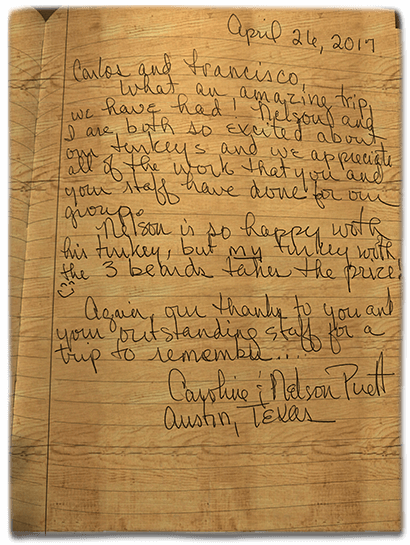 April 26, 2017
Carlos and Francisco,
What an amazing trip
we have had! Nelson and
I are both so excited about
our turkeys and we appreciate
all of the work that you and
your staff have done for our
group.
Nelson is so happy with
his turkey, but my turkey with
the 3 beards takes the prize!
Again, our thanks to you and
your outstanding staff for a
trip to remember....
Caroline & Nelson Puett
Austin, Texas